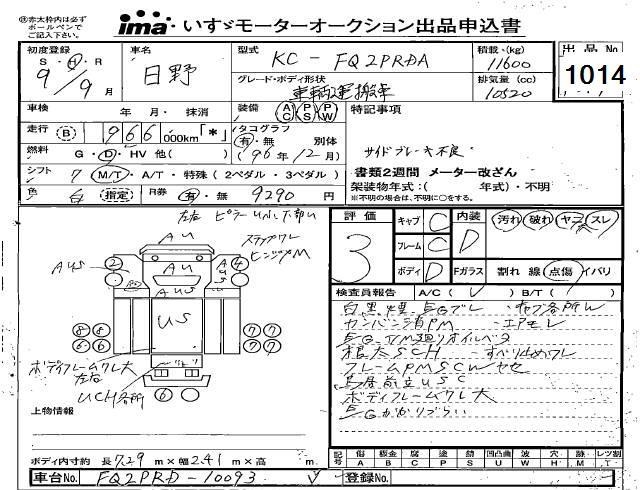 ※赤太枠内は必ず
ボールペンで
ご記入下さい。
ima・いすゞモーターオークション出品申込書
初度登録
S・H・R
9年 9月
車名
日野
型式
KC-FQ2PRDA
積載・(kg)
11600
出品No
1014
グレード・ボディ形状
車輌運搬車
排気量(cc)
10520
車検 年・月・抹消
装備 AC PS PW
特記事項
走行 B 966 000km「*」
タコグラフ
有・無 別体
(96年12月)
燃料 G・D・HV 他( )
サイドブレーキ不良
シフト 7 M/T・A/T・特殊(2ペダル・3ペダル)
書類2週間 メーター改ざん
架装物年式:( 年式)・不明
※不明の場合は、不明に○をする。
色 白 指定 R券 有・無 9290円
左右
AU
ステップワレ
ヒンジPM
AU
AUS
US
2
4
8 8
6 6
7 7
7 7
ボディフレームワレ大
左右
UCH各所
6
上物情報
ボディ内寸約 長7.29m×幅2.41m×高 m
車台No. FQ2PRD-10093
評価
3
キャブ C
フレーム C
ボディ D
内装 D
汚れ 破れ ヤコ スレ
Fガラス 割れ 線 点傷 イバリ
検査員報告 A/C( ) B/T( )
白黒煙 EGブレ
カンバン消PM ・エアモレ
フレームPMSCWヤセ
ボディフレームワレ大
EGかかりづらい
記号
傷 鈑金 腐 塗 錆 凹凸曲 波 穴 跡 レツ割
A B C P S U W H M T
登録No.